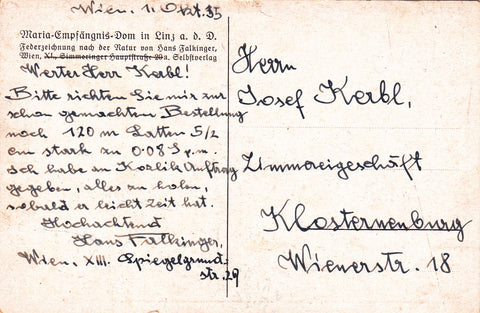 Wien. 1. Okt. 35
Maria-Empfängnis-Dom in Linz a. d. D.
Federzeichnung nach der Natur von Hans Falkinger,
Wien, XI., Simmeringer Hauptstraße 20a. Selbstverlag
Werter Herr Kerbl!
Bitte richten Sie mir zur
schon gemachten Bestellung
noch 120 m Latten 5/2
cm stark zu 0.08 S p.m.
Ich habe an Kozlik Auftrag
gegeben, alles zu holen,
sobald er leicht Zeit hat.
Hochachtend
Hans Falkinger,
Wien, XIII. Spiegelgrund-
str. 29
Herrn
Josef Kerbl,
Zimmereigeschäft
Klosterneuburg
Wienerstr. 18